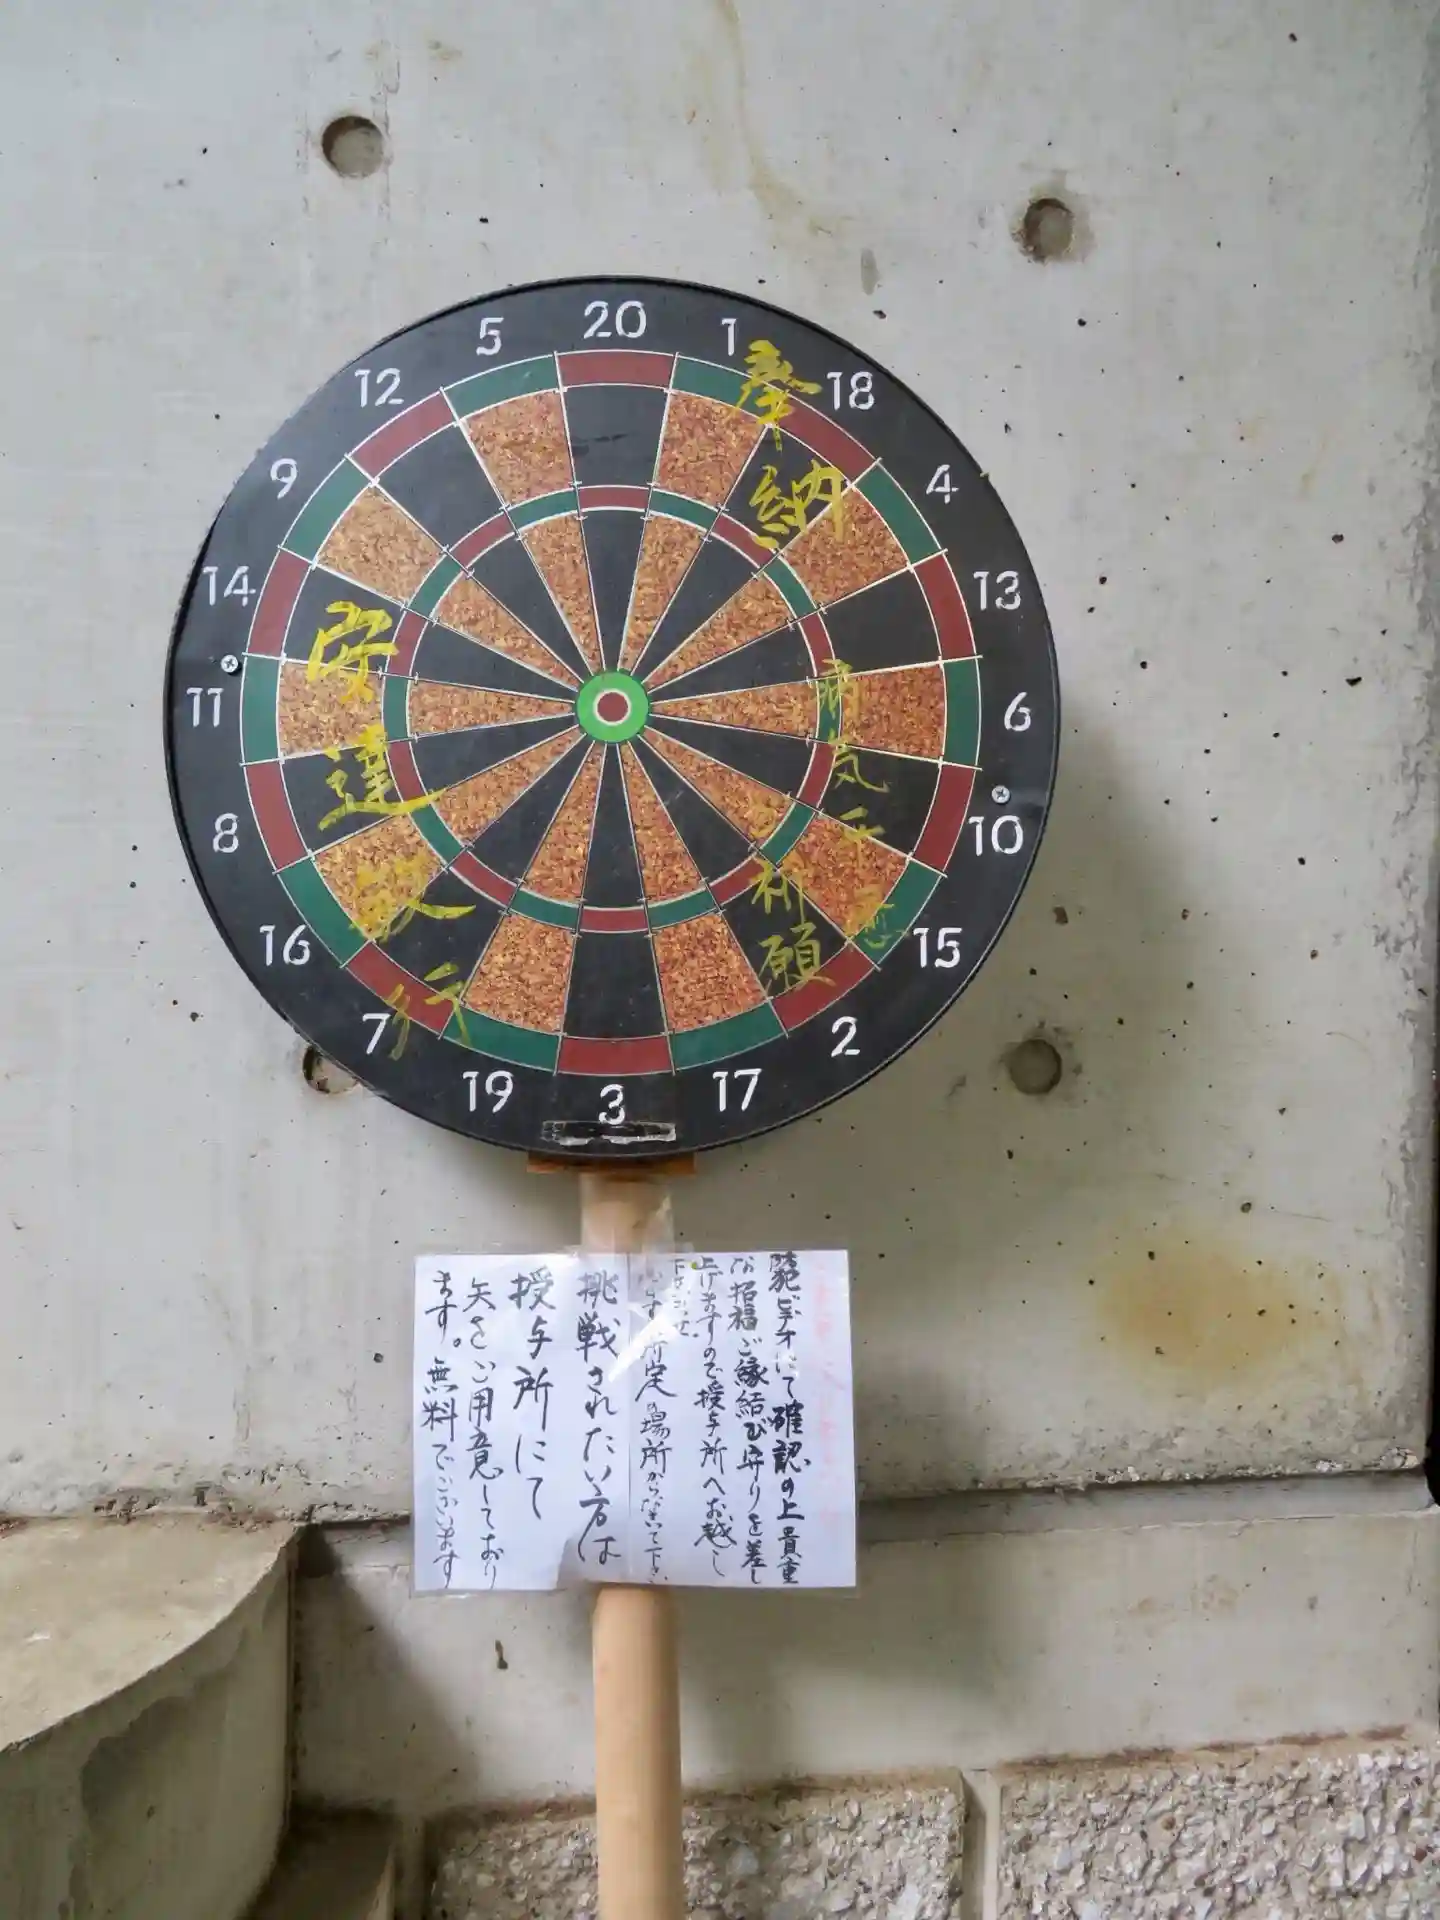 20
1
18
4
13
6
10
15
2
17
3
19
7
16
8
11
14
9
12
5
奉納
病気平癒
祈願
安達
行
ビデオにて確認の上貴重
な招福ご縁結び守りを差し
上げますので授与所へお越し
下さいませ
所定の場所から
挑戦されたい方は
授与所にて
矢をご用意しており
ます。無料でございます